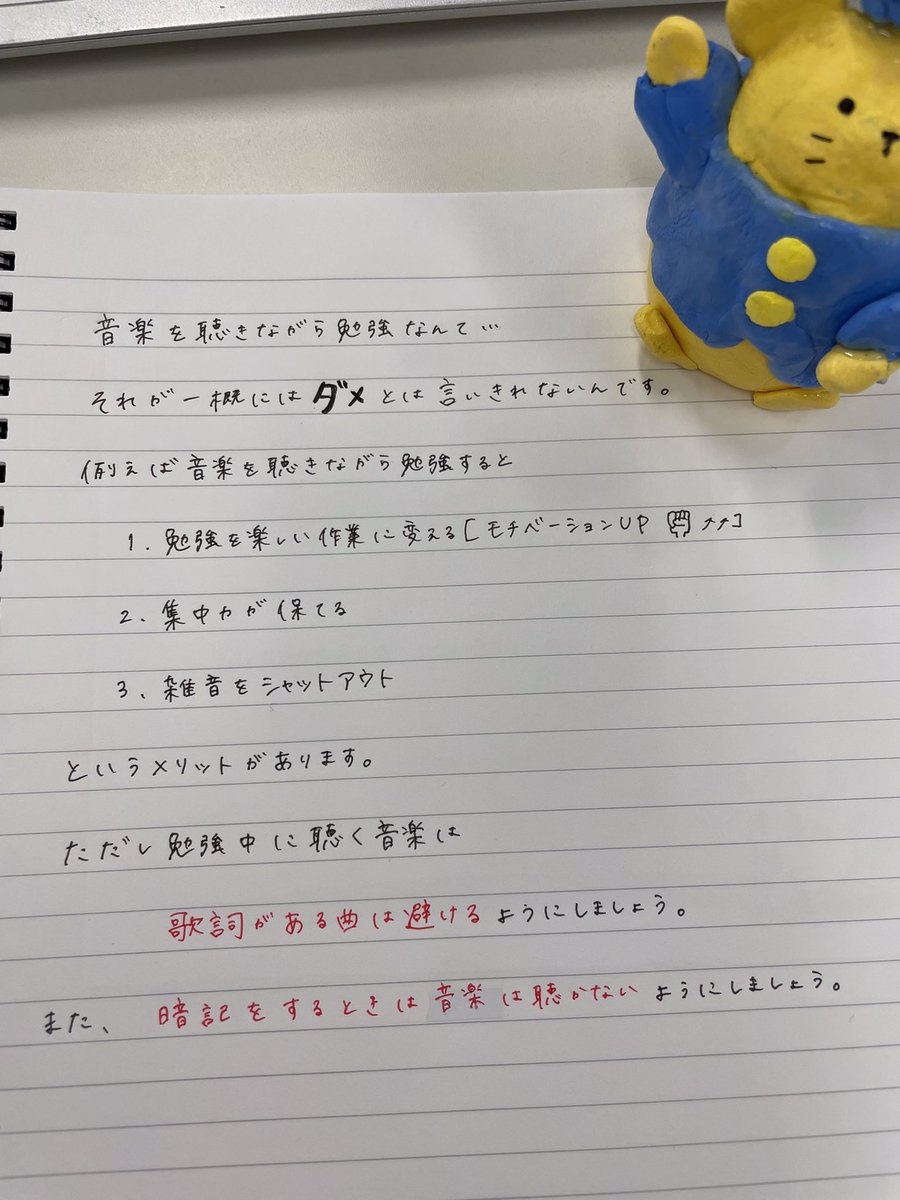 音楽を聴きながら勉強なんて…
それが一概にはダメとは言いきれないんです。
例えば音楽を聴きながら勉強すると
1. 勉強を楽しい作業に変える[モチベーションUP ✊ ↗↗]
2. 集中力が保てる
3. 雑音をシャットアウト
というメリットがあります。
ただし勉強中に聴く音楽は
歌詞がある曲は避けるようにしましょう。
また、暗記をするときは音楽は聴かないようにしましょう。